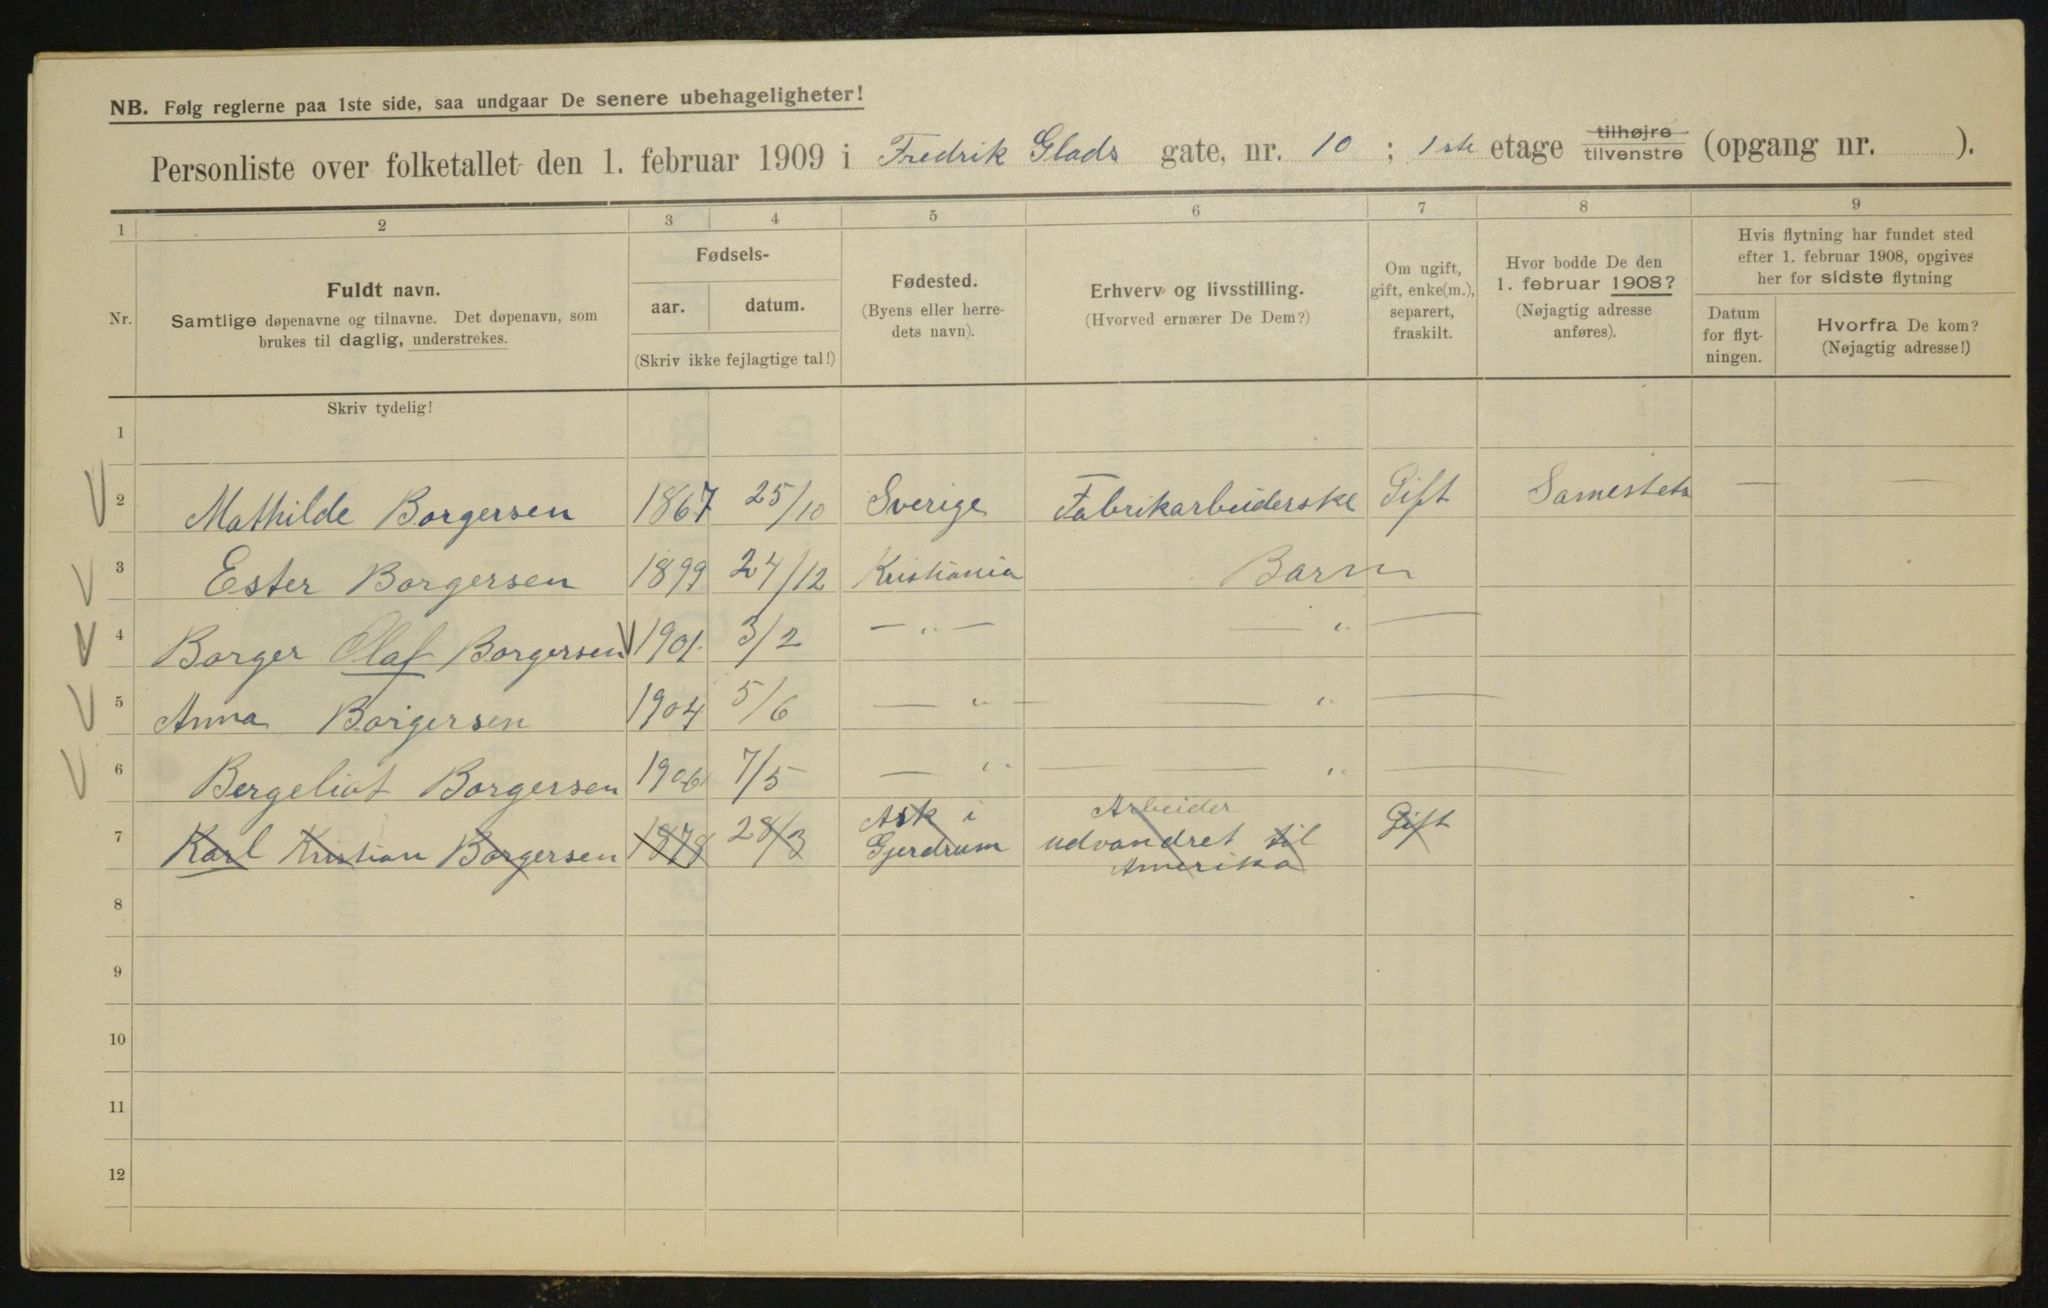 NB. Følg reglerne paa 1ste side, saa undgaar De senere ubehageligheter!
Personliste over folketallet den 1. februar 1909 i Fredrik Glads gate, nr. 10 ; 1ste etage tilhøjre tilvenstre (opgang nr. ).
1 2 3 4 5 6 7 8 9
Nr.
Fuldt navn.
Samtlige døpenavne og tilnavne. Det døpenavn, som
brukes til daglig, understrekes.
Fødsels-
aar. datum.
(Skriv ikke fejlagtige tal!)
Fødested.
(Byens eller herre-
dets navn).
Erhverv og livsstilling.
(Hvorved ernærer De Dem?)
Om ugift,
gift, enke(m.),
separert,
fraskilt.
Hvor bodde De den
1. februar 1908?
(Nøjagtig adresse
anføres).
Hvis flytning har fundet sted
efter 1. februar 1908, opgives
her for sidste flytning
Datum
for flyt-
ningen.
Hvorfra De kom?
(Nøjagtig adresse!)
Skriv tydelig!
1
2 Mathilde Borgersen 1867 25/10 Sverige Fabrikarbeiderske Gift Samesteds — —
3 Ester Borgersen 1899 24/12 Kristiania Barn
4 Borger Olaf Borgersen 1901 3/2 — " — — " —
5 Anna Borgersen 1904 5/6 — " — — " —
6 Bergeliot Borgersen 1906 7/5 — " — — " —
7 Karl Kristian Borgersen 1878 28/3 Ask i Gjerdrum Arbeider udvandret til Amerika Gift
8
9
10
11
12